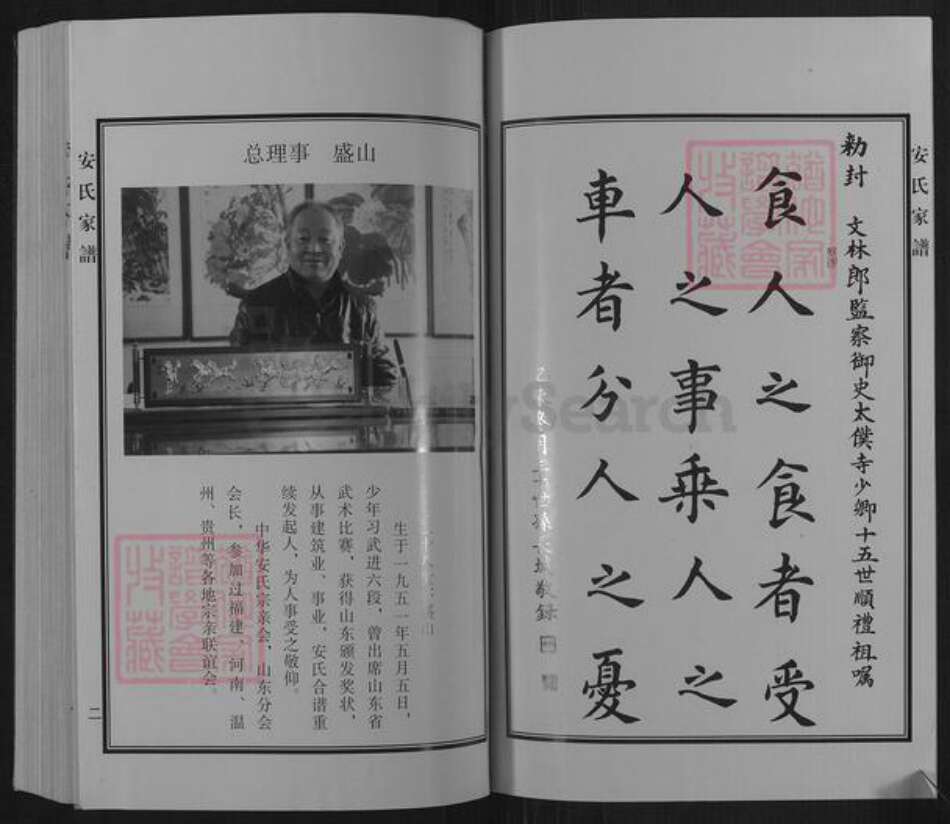 安氏家譜
勅封 文林郎監察御史太僕寺少卿十五世順禮祖嘱
食人之食者受
人之事乘人之
車者分人之憂
敬録
總譜學會
收藏
安氏家譜
二
总理事 盛山
生于一九五一年五月五日，
少年习武进六段，曾出席山东省
武术比赛，获得山东颁发奖状，
从事建筑业、事业，安氏合谱重
续发起人，为人事受之敬仰。
中华安氏宗亲会，山东分会
会长，参加过福建、河南、温
州、贵州等各地宗亲联谊会。
收藏
FamilySearch